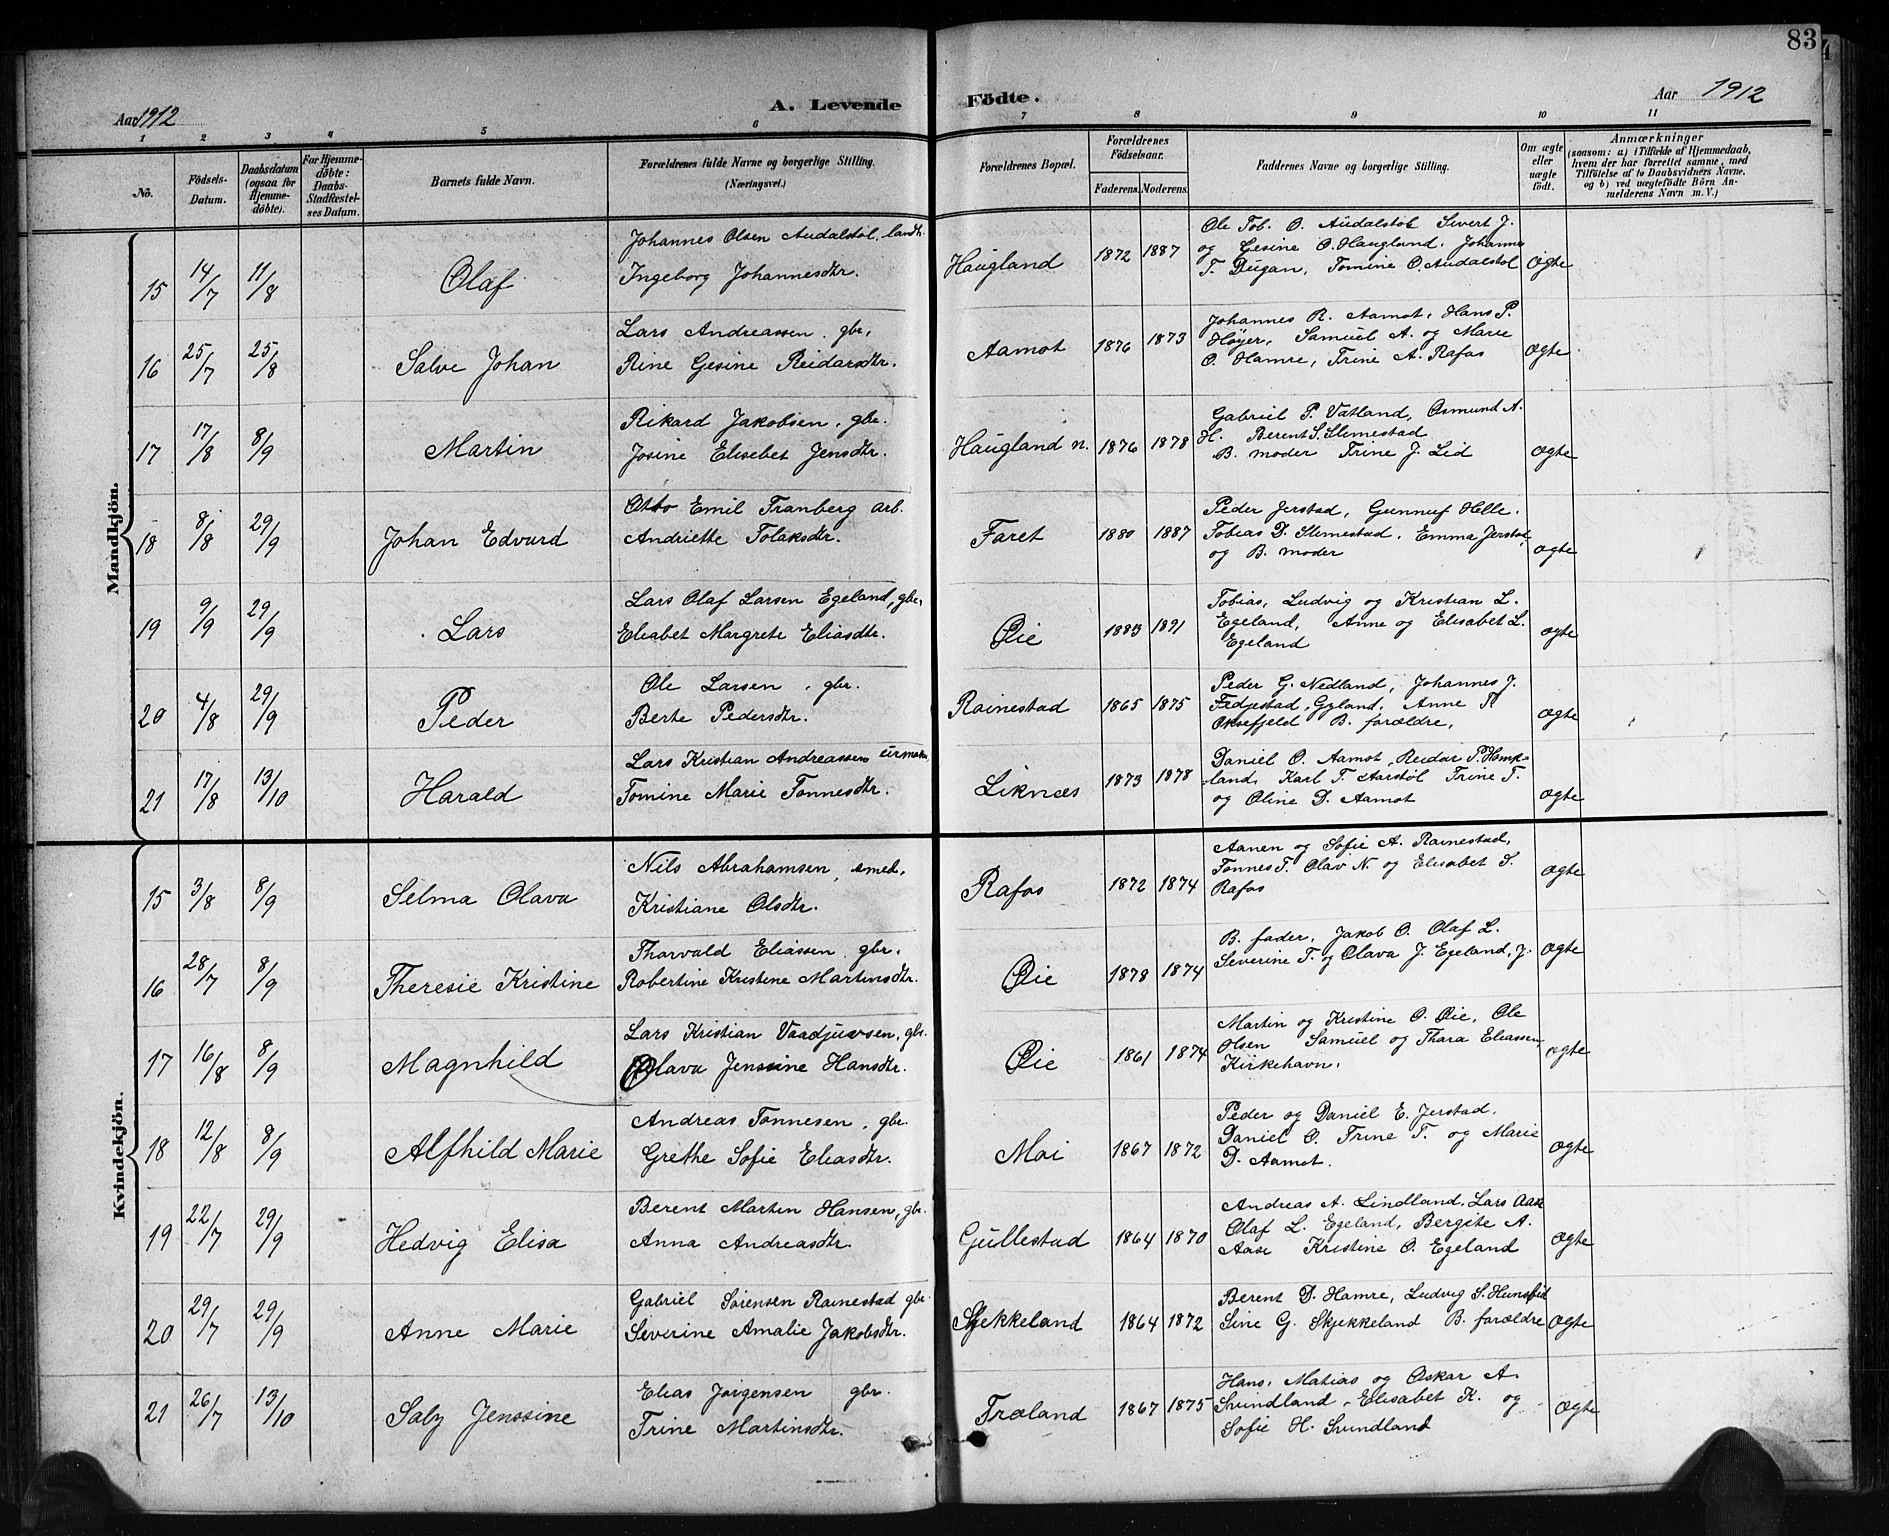 83
Aar 1912
A. Levende Födte.
Aar 1912
1 2 3 4 5 6 7 8 9 10 11
No.
Födsels-
Datum.
Daabsdatum
(ogsaa for
Hjemme-
döbte).
For Hjemme-
döbte:
Daabs-
Stadfæstel-
ses Datum.
Barnets fulde Navn.
Forældrenes fulde Navne og borgerlige Stilling.
(Næringsvei.)
Forældrenes Bopæl.
Forældrenes
Födselsaar.
Faderens. Moderens.
Faddernes Navne og borgerlige Stilling.
Om ægte
eller
uægte
födt.
Anmærkninger
(saasom: a) i Tilfælde af Hjemmedaab,
hvem der har forrettet samme, med
Tilföielse af to Daabsvidners Navne,
og b) ved uægtefödte Börn An-
melderens Navn m. V.)
Mandkjön.
15 14/7 11/8 Olaf
Johannes Olsen Audalstöl, landh.
Ingeborg Johannesdtr.
Haugland 1872 1887
Ole Tob. O. Audalstöl Sivert J.
og Gesine O. Haugland, Johannes
T. Dugan, Tomine O. Audalstöl
Ægte
16 25/7 25/8 Salve Johan
Lars Andreassen, gbr.
Rine Gesine Reidarsdtr.
Aamot 1876 1873
Johannes R. Aamot, Hans P.
Høyer, Samuel A. og Marie
O. Hamre, Trine A. Rafos
Ægte
17 17/8 8/9 Martin
Rikard Jakobsen, gbr.
Josine Elisebet Jensdtr.
Haugland n. 1876 1878
Gabriel P. Vatland, Osmund A.
H. Berent S. Slimestad
B. moder Trine J. Lid
Ægte
18 8/8 29/9 Johan Edvard
Otto Emil Franberg arb.
Andriette Tolaksdtr.
Faret 1880 1887
Peder Jerstad, Gunnuf Helle.
Tobias D. Slimestad, Emma Jerstad
og B. moder
Ægte
19 9/9 29/9 Lars
Lars Olaf Larsen Egeland, gbr.
Elisabet Margrete Eliasdtr.
Øie 1883 1891
Tobias, Ludvig og Kristian L.
Egeland, Anne og Elisabet L.
Egeland
Ægte
20 4/8 29/9 Peder
Ole Larsen, gbr.
Berte Pedersdtr.
Rainestad 1865 1875
Peder G. Nedland, Johannes J.
Fedjestad, Gyland, Anne
Oksefjeld B. forældre,
Ægte
21 17/8 13/10 Harald
Lars Kristian Andreassen urmak.
Tomine Marie Tønnesdtr.
Liknæs 1873 1878
Daniel O. Aamot, Reidar P. Homp-
land, Karl T. Aarstøl Trine T.
og Oline D. Aamot
Ægte
Kvindekjön.
15 3/8 8/9 Selma Olava
Nils Abrahamsen, smed,
Kristiane Olsdtr.
Rafos 1872 1874
Aanen og Sofie A. Rainestad,
Tønnes T. Olav N. og Elisabet S.
Rafos
Ægte
16 28/7 8/9 Theresie Kristine
Thorvald Eliassen gbr.
Robertine Kristine Martinsdtr.
Øie 1878 1874
B. fader, Jakob O. Olaf L.
Severine T. og Olava J. Egeland, J.
Ægte
17 16/8 8/9 Magnhild
Lars Kristian Vaadjuvsen, gbr.
Olava Jenssine Hansdtr.
Øie 1861 1874
Martin og Kristine O. Øie, Ole
Olsen Samuel og Thara Eliassen,
Kirkehavn.
Ægte
18 12/8 8/9 Alfhild Marie
Andreas Tønnesen, gbr.
Grethe Sofie Eliasdtr.
Moi 1867 1872
Peder og Daniel E. Jerstad,
Daniel O. Trine T. og Marie
D. Aamot.
Ægte
19 22/7 29/9 Hedvig Elisa
Berent Martin Hansen, gbr.
Anna Andreasdtr.
Gullestad 1864 1870
Andreas A. Lindland, Lars Aase
Olaf L. Egeland, Bergite A.
Aase Kristine O. Egeland
Ægte
20 29/7 29/9 Anne Marie
Gabriel Sørensen Rainestad gbr.
Severine Amalie Jakobsdtr.
Skjekkeland 1864 1872
Berent D. Hamre, Ludvig S. Hunsfjeld
Sine G. Skjekkeland B. forældre
Ægte
21 26/7 13/10 Saly Jenssine
Elias Jørgensen gbr.
Trine Martinsdtr.
Træland 1867 1875
Hans, Matias og Oskar A.
Svindland, Elisabet K. og
Sofie H. Svindland
Ægte